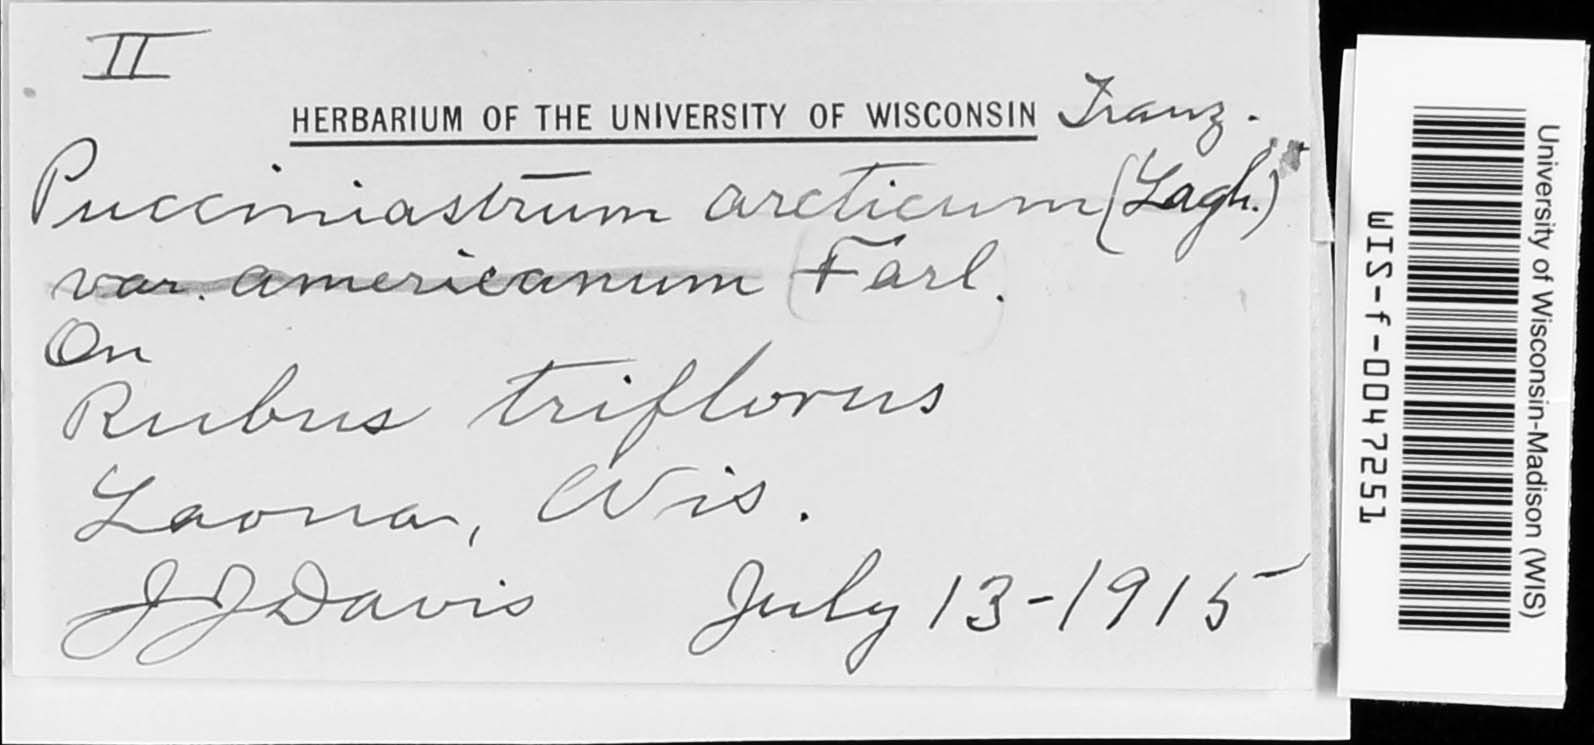 II
HERBARIUM OF THE UNIVERSITY OF WISCONSIN Tranz.
Pucciniastrum arcticum (Lagh.)
var. americanum Farl.
On
Rubus triflorus
Laona, Wis.
JJ Davis July 13-1915
University of Wisconsin-Madison (WIS)
WIS-f-0047251